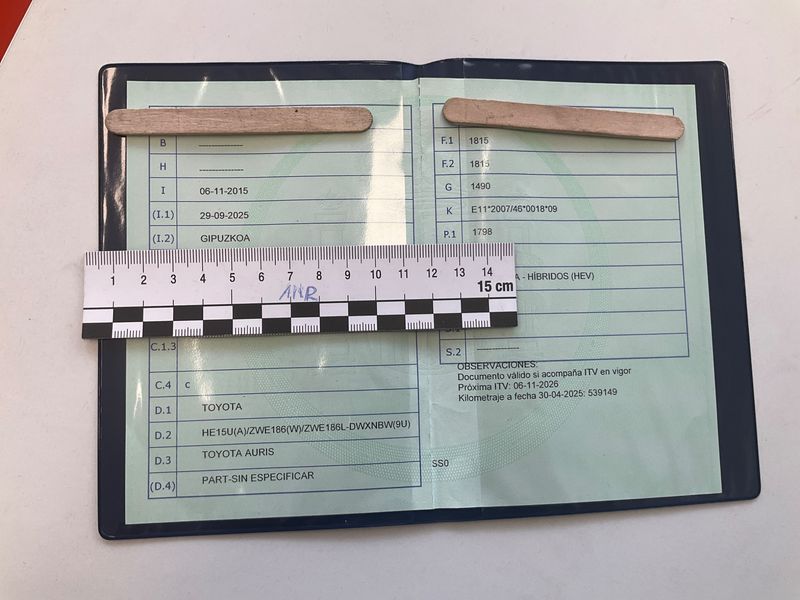 B ---------------
H ---------------
I 06-11-2015
(I.1) 29-09-2025
(I.2) GIPUZKOA
1 2 3 4 5 6 7 8 9 10 11 12 13 14
15 cm
C.1.3
C.4 c
D.1 TOYOTA
D.2 HE15U(A)/ZWE186(W)/ZWE186L-DWXNBW(9U)
D.3 TOYOTA AURIS
(D.4) PART-SIN ESPECIFICAR
F.1 1815
F.2 1815
G 1490
K E11*2007/46*0018*09
P.1 1798
- HÍBRIDOS (HEV)
S.2 ---------------
OBSERVACIONES:
Documento válido si acompaña ITV en vigor
Próxima ITV: 06-11-2026
Kilometraje a fecha 30-04-2025: 539149
SS0